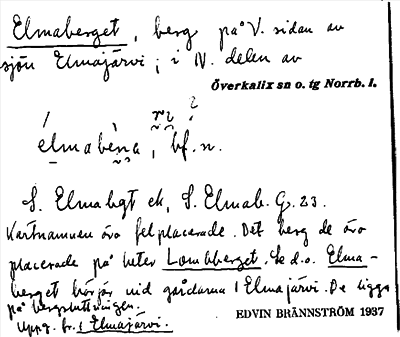 Elmaberget, berg på V. sidan av
sjön Elmajärvi; i N. delen av
Överkalix sn o. tg Norrb. l.
elmabèna, bf. n.
S. Elmabgt ek, S. Elmab. G. 23.
Kartnamnen äro felplacerade. Det berg de äro
placerade på heter Lombberget. Se d.o. Elma-
berget börjar vid gårdarna i Elmajärvi. De ligga
på bergsluttningen.
Uppg. fr. i Elmajärvi.
EDVIN BRÄNNSTRÖM 1937